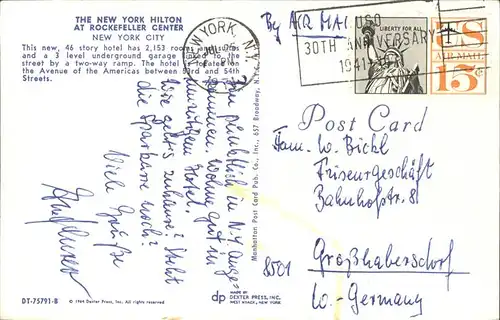 THE NEW YORK HILTON
AT ROCKEFELLER CENTER
NEW YORK CITY
This new, 46 story hotel has 2,153 rooms
and a 3 level underground garage linked to the
street by a two-way ramp. The hotel is located on
the Avenue of the Americas between 53rd and 54th
Streets.
NEW YORK, N.Y.
By AIR MAIL
USO
30TH ANNIVERSARY
1941
LIBERTY FOR ALL
US
AIR MAIL
15¢
Post Card
Fam. W. Bickl
Friseurgeschäft
Bahnhofstr. 81
8501 Großhabersdorf
W.-Germany
Bin pünktlich in N.Y. ange-
kommen. Wohne gut in
Hotel.
Wie geht's zuhause? Steht
die Sparkasse noch?
Viele Grüße
DT-75791-B
© 1964 Dexter Press, Inc. All rights reserved
dp
MADE BY
DEXTER PRESS, INC.
WEST NYACK, NEW YORK
Manhattan Post Card Pub. Co., Inc., 657 Broadway, N.Y.